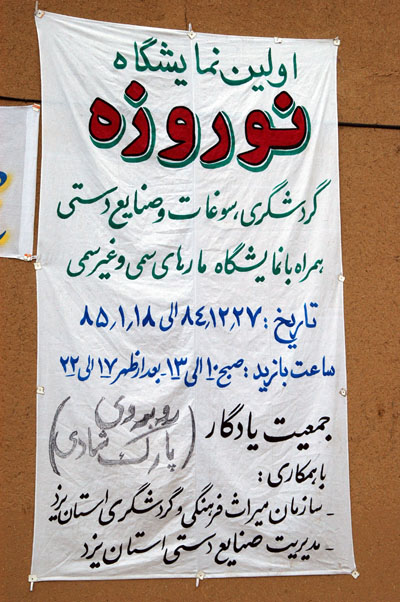 اولین نمایشگاه
نوروزه
گردشگری، سوغات و صنایع دستی
همراه با نمایشگاه مارهای سمی و غیر سمی
تاریخ : ۸۴،۱۲،۲۷ الی ۸۵،۱،۱۸
ساعت بازدید : صبح ۱۰ الی ۱۳ - بعد از ظهر ۱۷ الی ۲۲
جمعیت یادگار (روبروی پارک شادی)
با همکاری :
- سازمان میراث فرهنگی و گردشگری استان یزد
- مدیریت صنایع دستی استان یزد